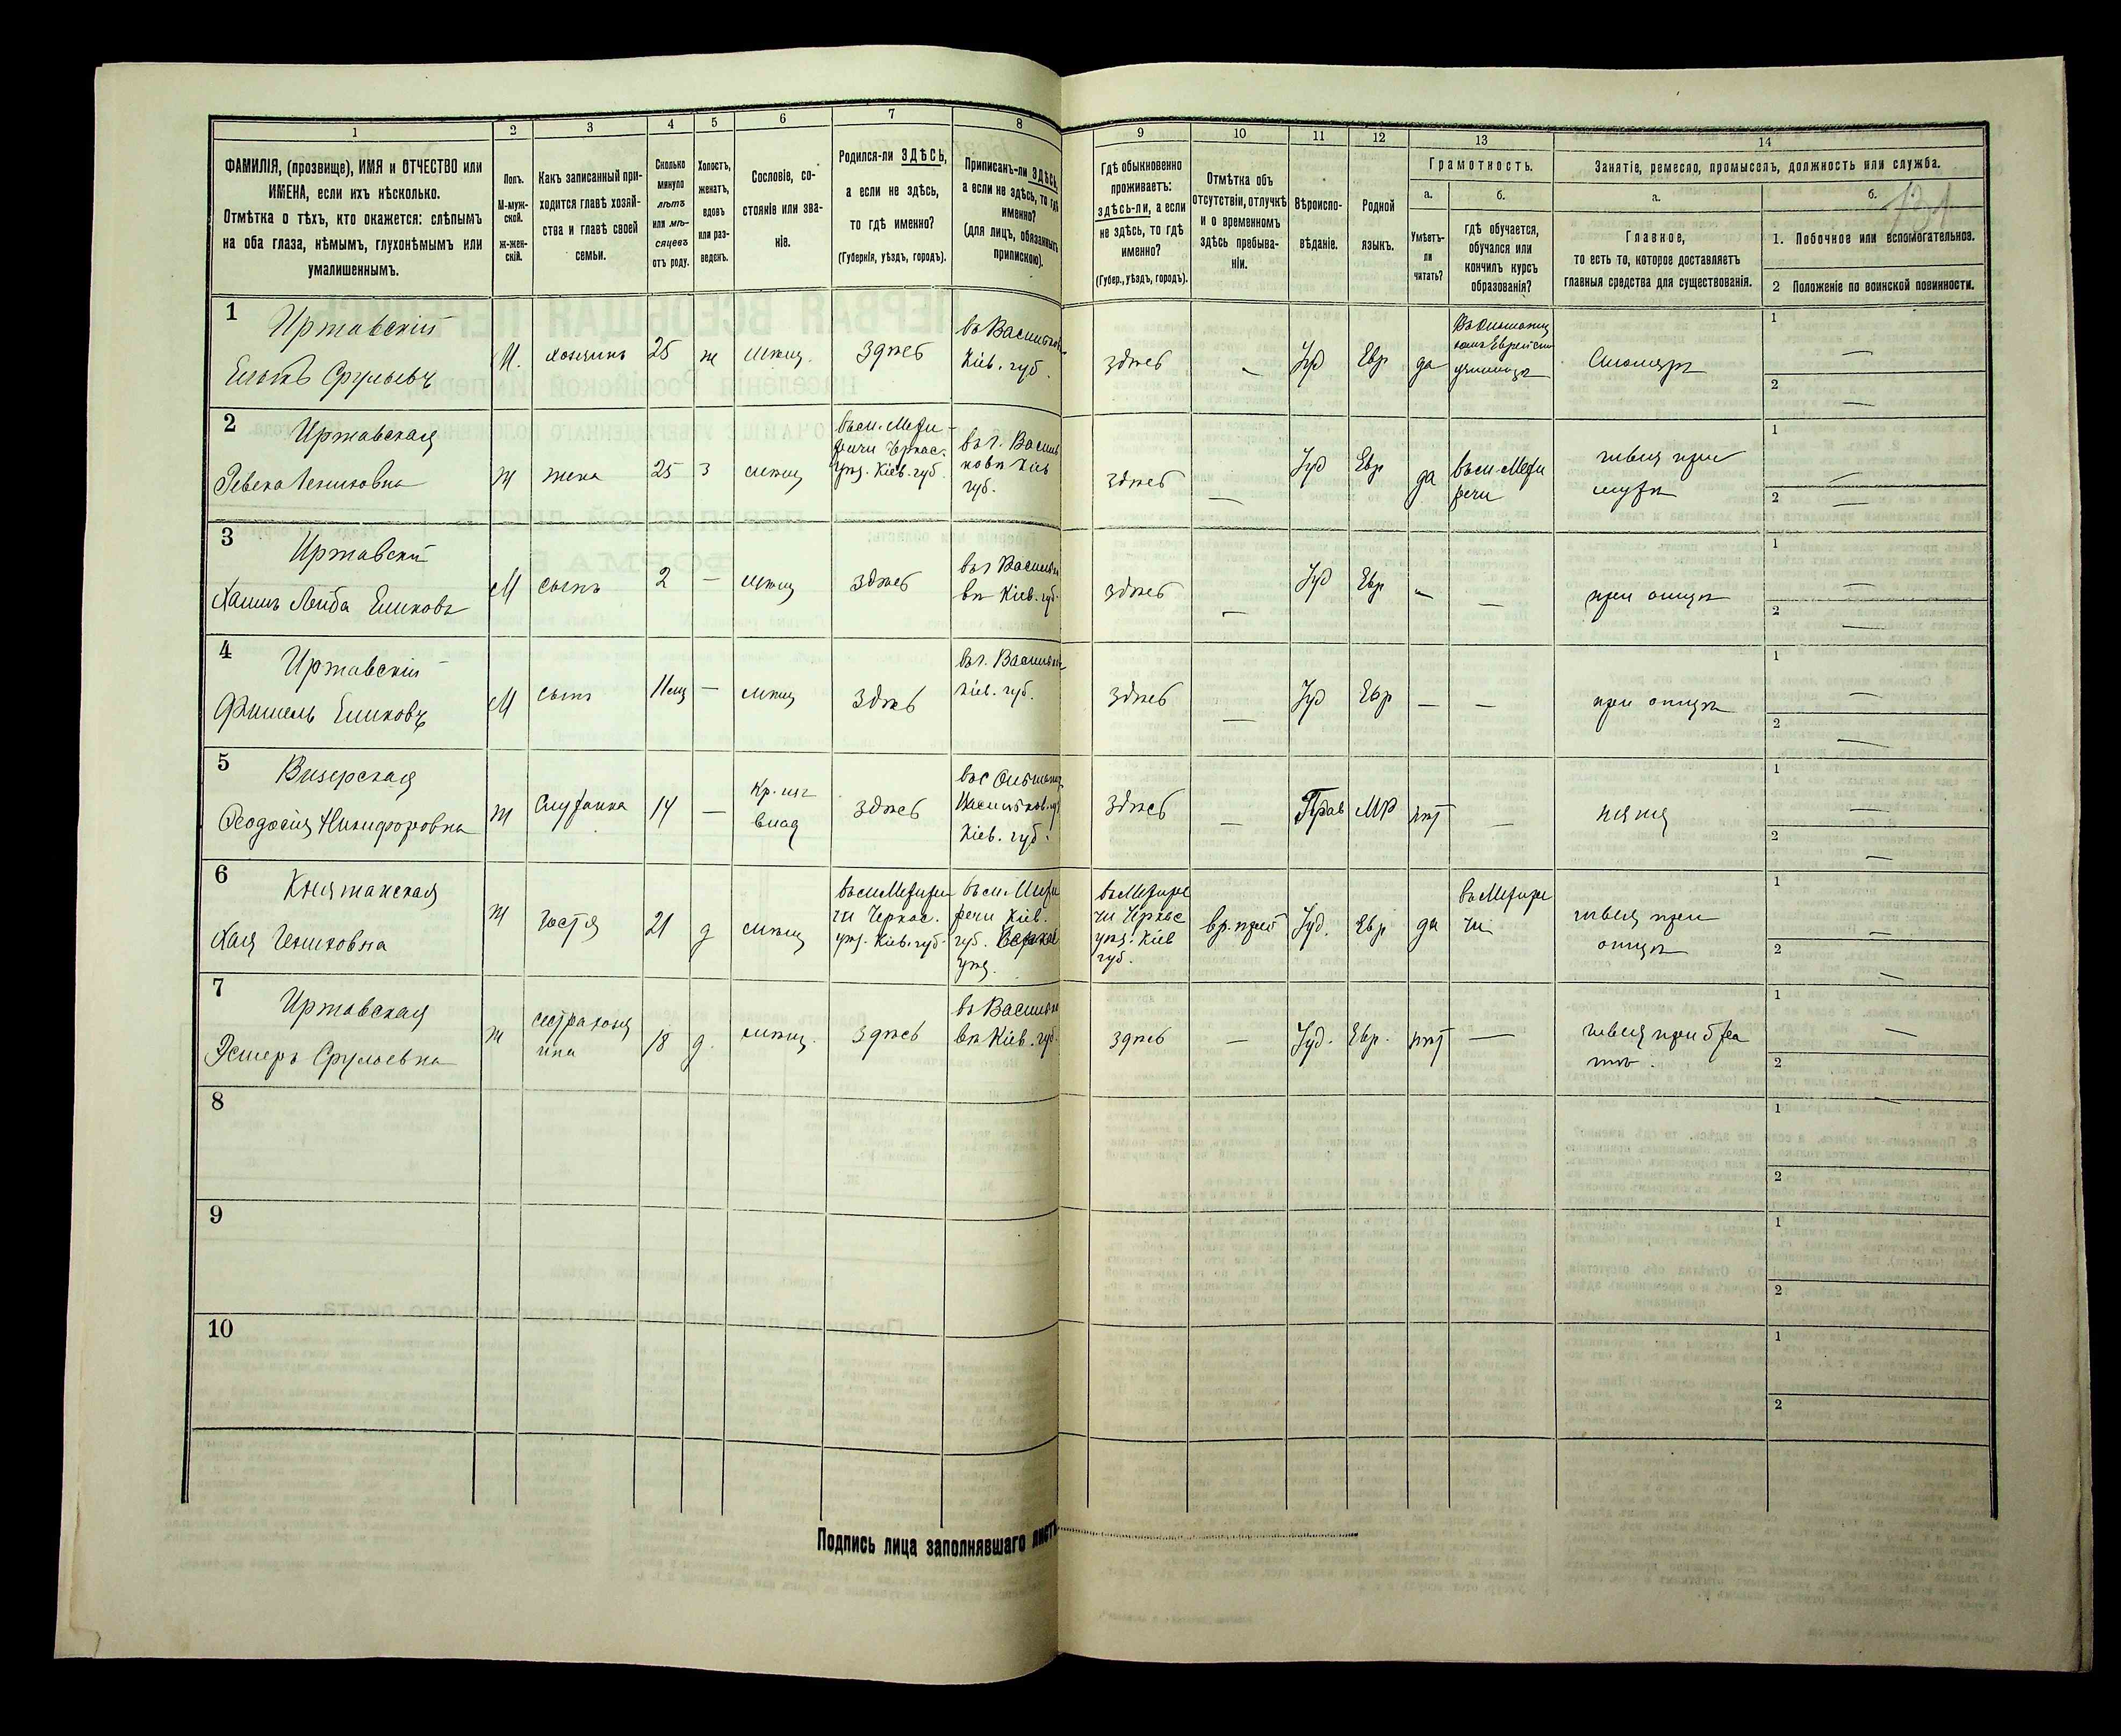 1
ФАМИЛІЯ, (прозвище), ИМЯ и ОТЧЕСТВО или
ИМЕНА, если ихъ нѣсколько.
Отмѣтка о тѣхъ, кто окажется: слѣпымъ
на оба глаза, нѣмымъ, глухонѣмымъ или
умалишеннымъ.
2
Полъ.
М-муж-
ской.
Ж-жен-
скій.
3
Какъ записанный при-
ходится главѣ хозяй-
ства и главѣ своей
семьи.
4
Сколько
минуло
лѣтъ
или мѣ-
сяцевъ
отъ роду.
5
Холостъ,
женатъ,
вдовъ
или раз-
веденъ.
6
Сословіе, со-
стояніе или зва-
ніе.
7
Родился-ли ЗДѢСЬ,
а если не здѣсь,
то гдѣ именно?
(Губернія, уѣздъ, городъ).
8
Приписанъ-ли ЗДѢСЬ,
а если не здѣсь, то гдѣ
именно?
(для лицъ, обязанныхъ
припискою).
9
Гдѣ обыкновенно
проживаетъ:
здѣсь-ли, а если
не здѣсь, то гдѣ
именно?
(Губер., уѣздъ, городъ).
10
Отмѣтка объ
отсутствіи, отлучкѣ
и о временномъ
здѣсь пребыва-
ніи.
11
Вѣроиспо-
вѣданіе.
12
Родной
языкъ.
13
Грамотность.
а.
Умѣетъ-
ли
читать?
б.
гдѣ обучается,
обучался или
кончилъ курсъ
образованія?
14
Занятіе, ремесло, промыселъ, должность или служба.
а.
Главное,
то есть то, которое доставляетъ
главныя средства для существованія.
б.
131
1. Побочное или вспомогательное.
2 Положеніе по воинской повинности.
1
Иржавскій
Срулевъ
М.
хозяинъ
25
ж
мѣщ.
здѣсь
въ Васильков
Кіев. губ.
здѣсь
—
Іуд
Евр
да
училищѣ
Столяръ
1 —
2 —
2
Иржавская
Ревека
ж
жена
25
з
мѣщ
въ м. Межи-
речи Черкас.
уѣз. Кіев. губ.
въ г. Василь
ковѣ Кіев
губ.
здѣсь
—
Іуд
Евр
да
въ м. Межи
речи
швея при
мужѣ
1 —
2 —
3
Иржавскій
Хаимъ Лейба
М
сынъ
2
—
мѣщ
здѣсь
въ г Василько
вѣ Кіев. губ.
здѣсь
—
Іуд
Евр
—
—
при отцѣ
1 —
2 —
4
Иржавскій
Фишель
М
сынъ
11 мц
—
мѣщ
здѣсь
въ г. Васильк
Кіев. губ.
здѣсь
—
Іуд
Евр
—
—
при отцѣ
1 —
2 —
5
Визерская
Феодосія Никифоровна
ж
Служанка
14
—
Кр. изъ
влад
здѣсь
Васильков. у
Кіев. губ.
здѣсь
—
Прав
МР
нѣт
—
няня
1 —
2 —
6
Княжанская
Хая
ж
гостя
21
д
мѣщ
въ м Межири
чи Черкас.
уѣз. Кіев. губ.
въ м. Межи
речи Кіев.
губ.
уѣз.
въ Межири
чи Черкас
уѣз. Кіев
губ.
вр. преб
Іуд.
Евр
да
въ Межири
чи
швея при
отцѣ
1 —
2 —
7
Иржавская
Эстеръ Срулевна
ж
сестра хозя
ина
18
д.
мѣщ.
здѣсь
въ Василько
вѣ Кіев. губ.
здѣсь
—
Іуд.
Евр.
нѣт
—
швея при бра
тѣ.
1 —
2 —
8
1
2
9
1
2
10
1
2
Подпись лица заполнявшаго листъ